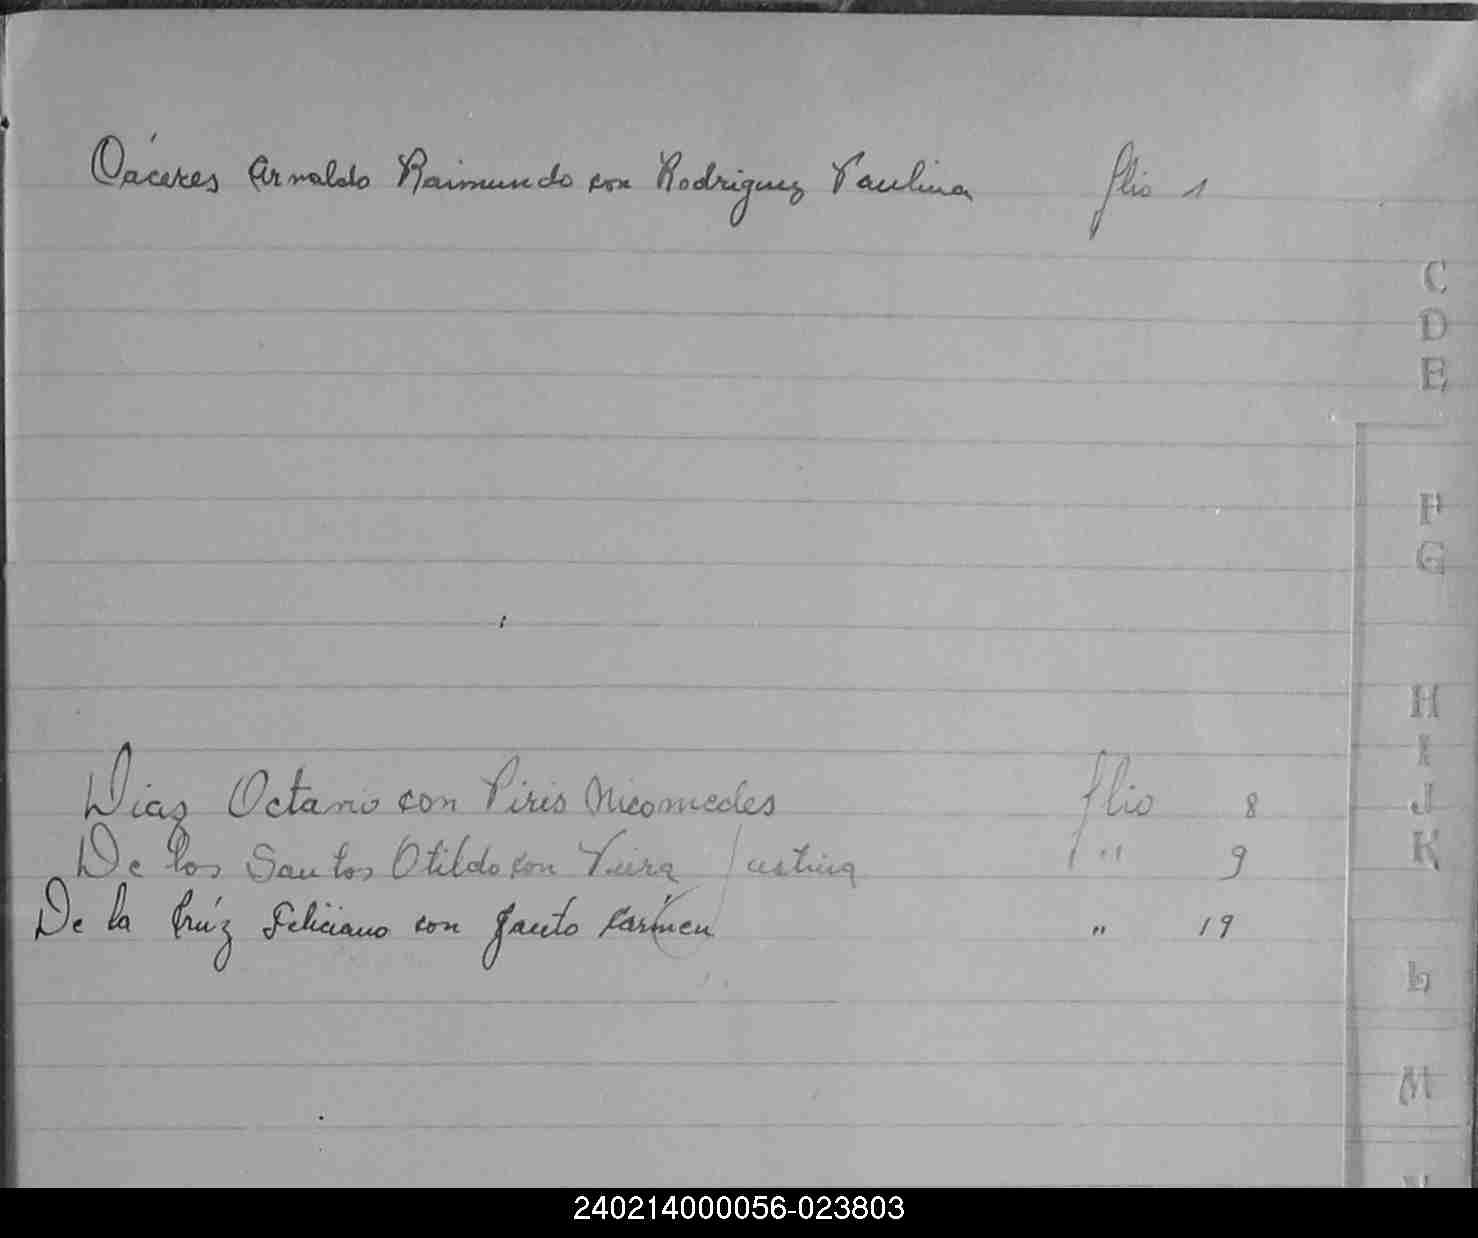 Cáceres Arnaldo Raimundo con Rodriguez Paulina flio 1
C
D
E
F
G
H
I
J
Diaz Octavio con Piris Nicomedes flio 8
De los Santos Otildo con Vieira Justina " 9
K
De la Crúz Feliciano con Carmen " 19
L
M
240214000056-023803